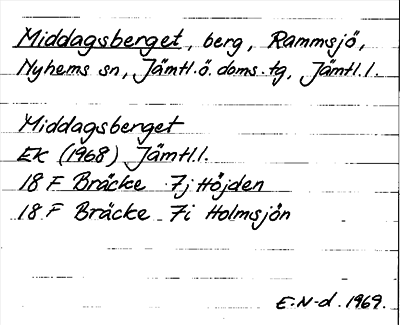 Middagsberget, berg, Rammsjö,
Nyhems sn, Jämtl. ö. doms. tg, Jämtl. l.
Middagsberget
EK (1968) Jämtl. l.
18 F Bräcke 7j Höjden
18 F Bräcke 7i Holmsjön
E. N-d. 1969.